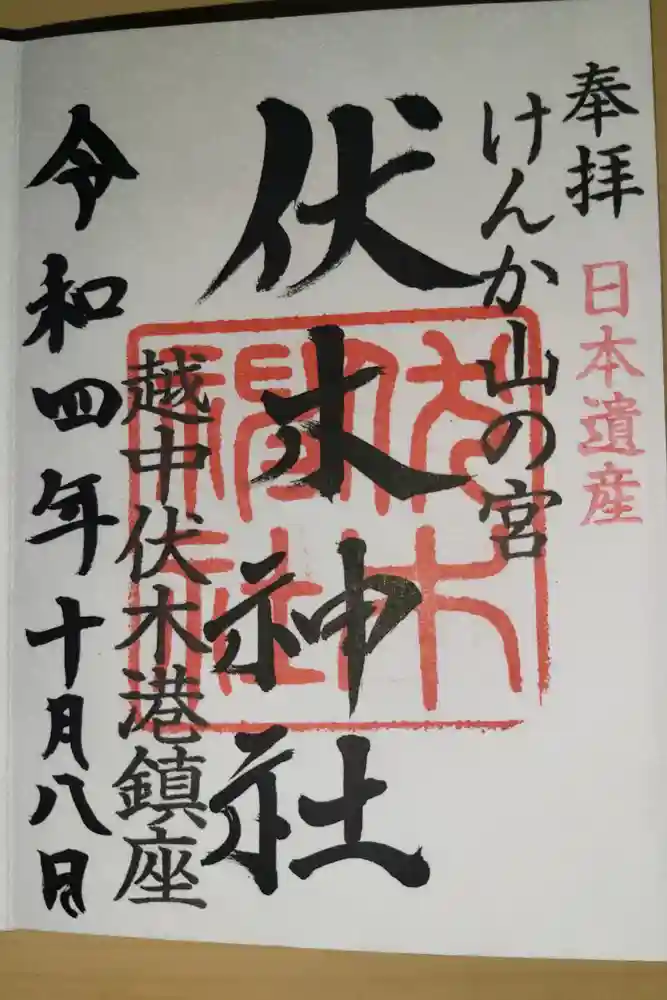 奉拝
日本遺産
けんか山の宮
伏木神社
越中伏木港鎮座
令和四年十月八日
伏木
神社